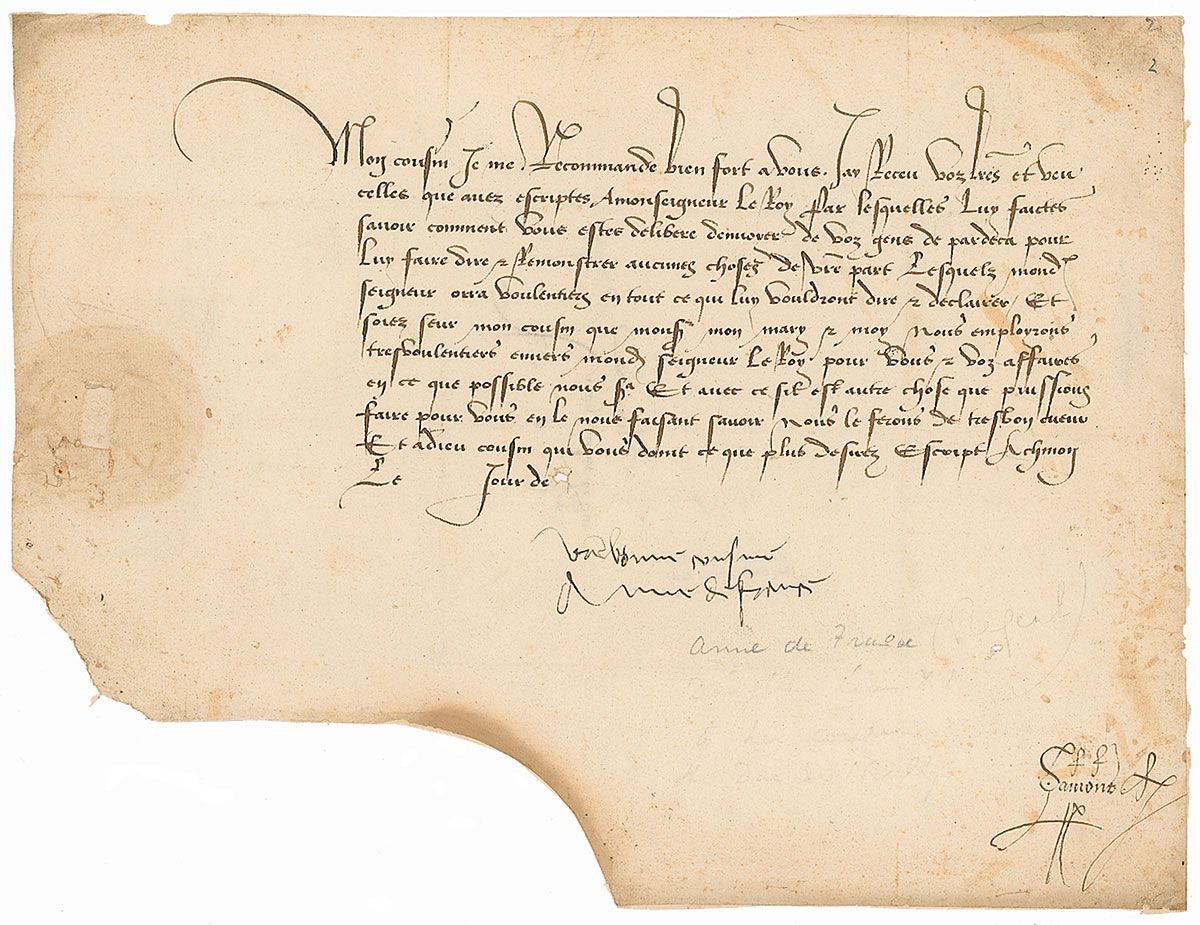 2
2
Mon cousin Je me Recommande bien fort a vous. Jay Receu voz lrēs et veu
celles que avez escriptes Amonseigneur Le Roy Par lesquelles Luy faictes
savoir comment vous estes delibere denvoyer de voz gens de pardeca pour
Luy faire dire & Remonstrer aucunes choses de vrē part Lesquelz mond
seigneur orra voulentiers en tout ce qui luy vouldront dire & declairer Et
soiez seur mon cousin que mons mon mary & moy Nous employrons
tresvoulentiers envers mond seigneur Le Roy pour vous & voz affaires
en ce que possible nous sa Et avec ce sil est autre chose que puissions
faire pour vous en le nous faisant savoir Nous le ferons de tresbon cueur
Et adieu cousin qui vous doint ce que plus desirez Escript Achinon
Le Jour de
vrē bonne cousine
Anne de france
Anne de France (Regent)
Damont